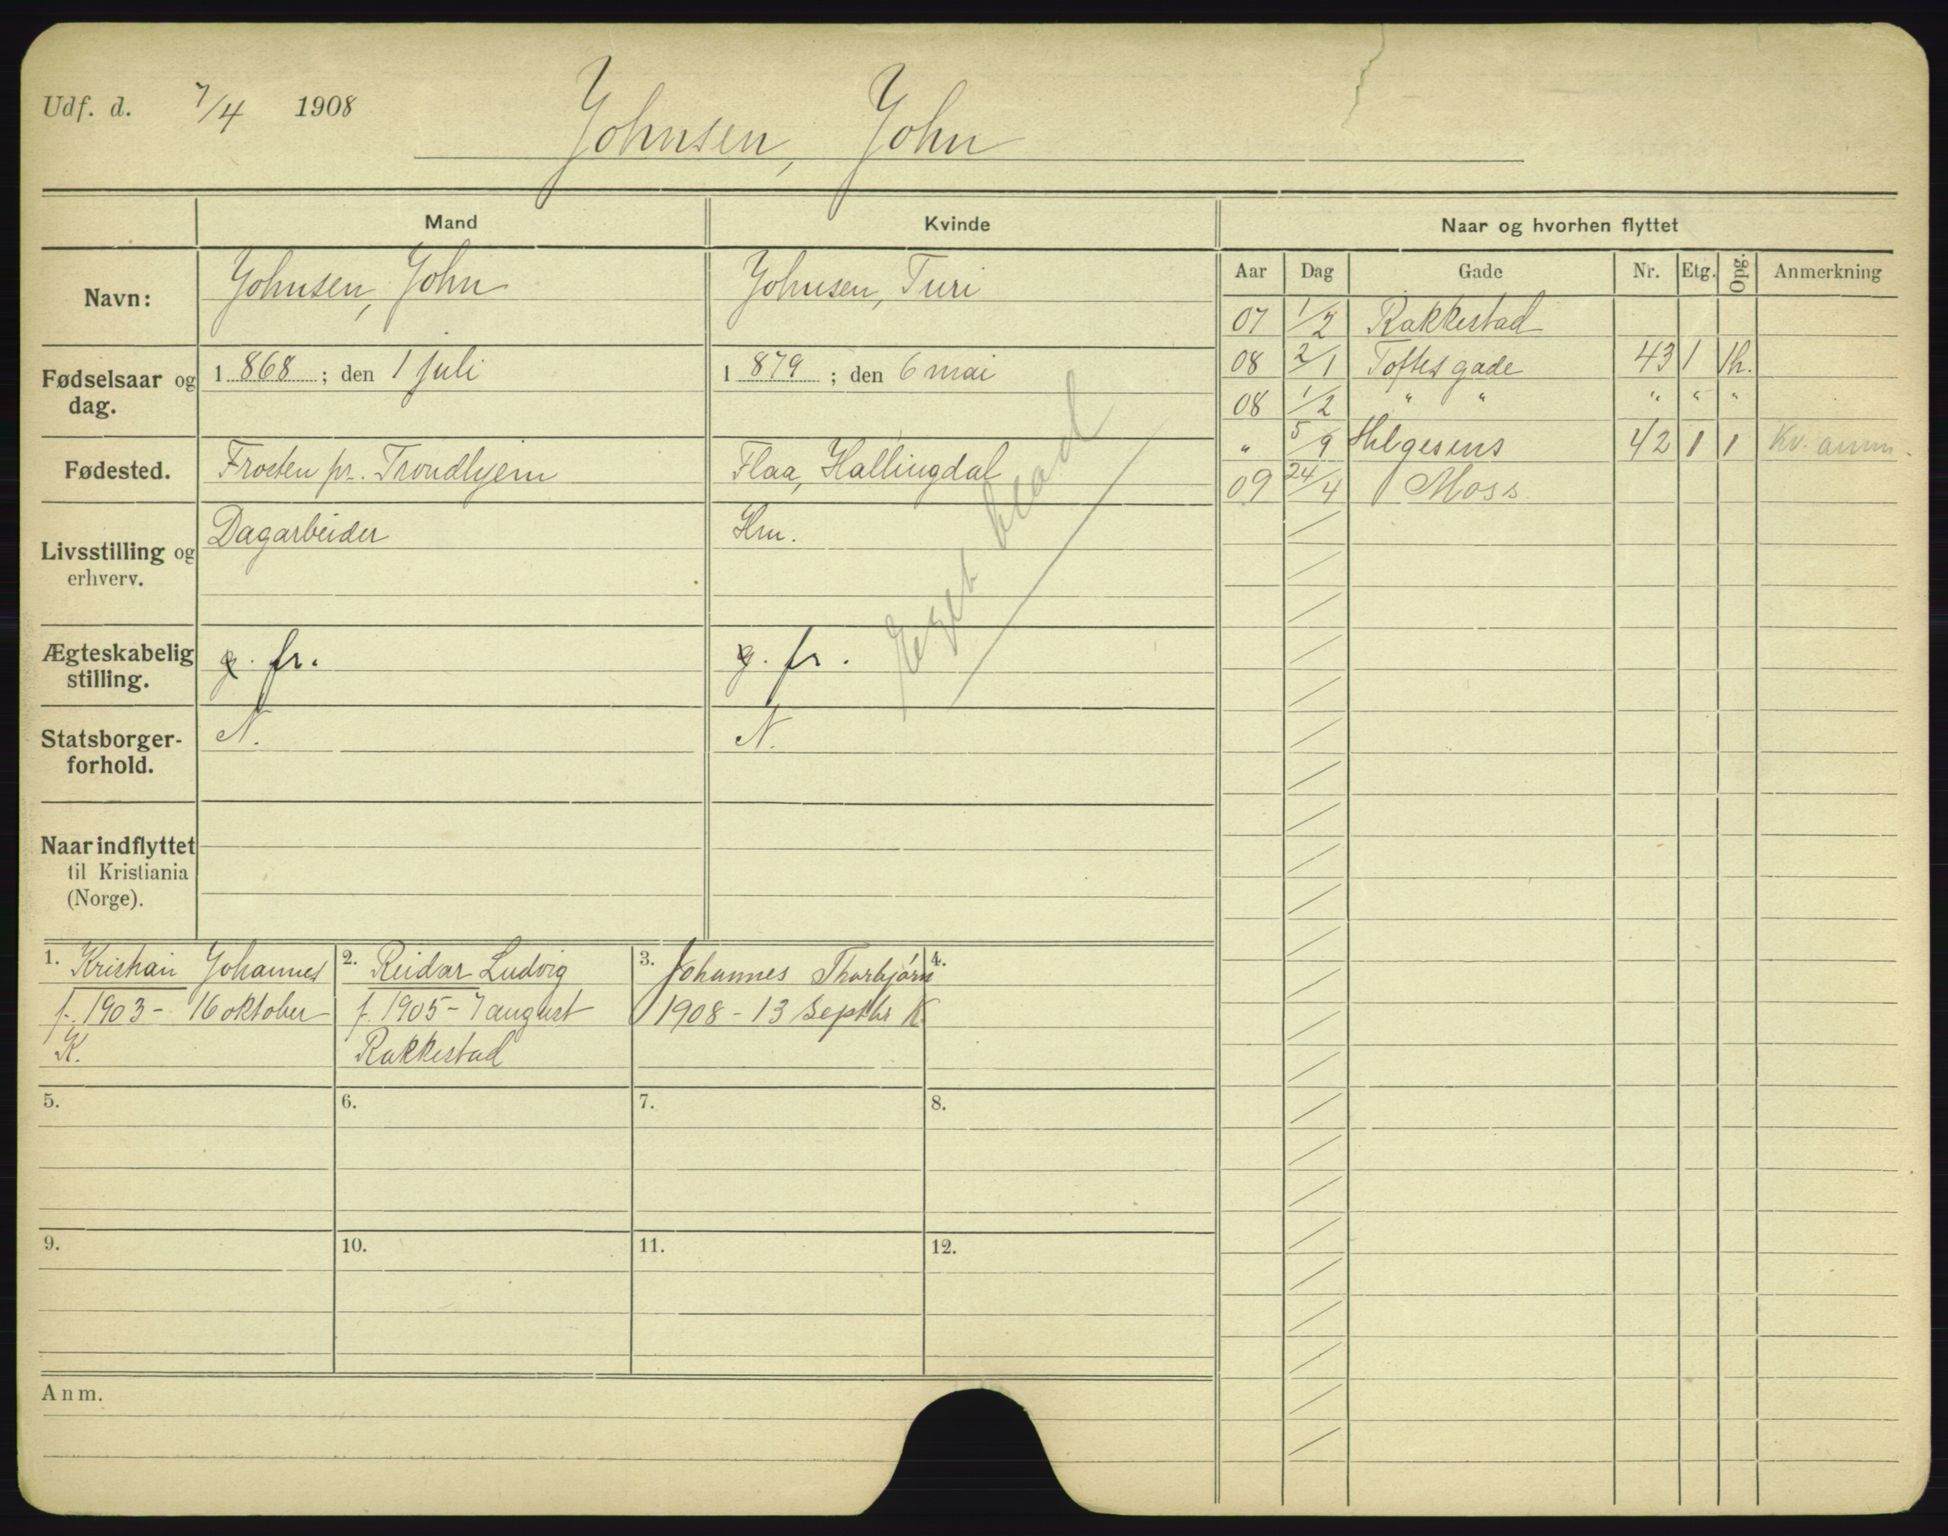 Udf. d. 7/4 1908 Johnsen, John
Mand Kvinde Naar og hvorhen flyttet
Aar Dag Gade Nr. Etg. Opg. Anmerkning
Navn: Johnsen, John Johnsen, Turi
Fødselsaar og dag. 1868; den 1 juli 1879; den 6 mai
Fødested. Frosten pr. Trondhjem Flaa, Hallingdal
Livsstilling og erhverv. Dagarbeider Hru.
Ægteskabelig stilling. g. fr. g. fr.
Eget blad
Statsborger-forhold. N. N.
Naar indflyttet til Kristiania (Norge).
07 1/2 Rakkestad
08 2/1 Toftes gade 43 1 1h.
08 1/2 " " " " "
" 5/9 Helgesens 42 1 1 Kv. anm.
09 24/4 Moss
1. Kristian Johannes
f. 1903 - 16 oktober
K.
2. Reidar Ludvig
f. 1905 - 7 august
Rakkestad
3. Johannes Thorbjørn
1908 - 13 Septbr K.
4.
5. 6. 7. 8.
9. 10. 11. 12.
Anm.